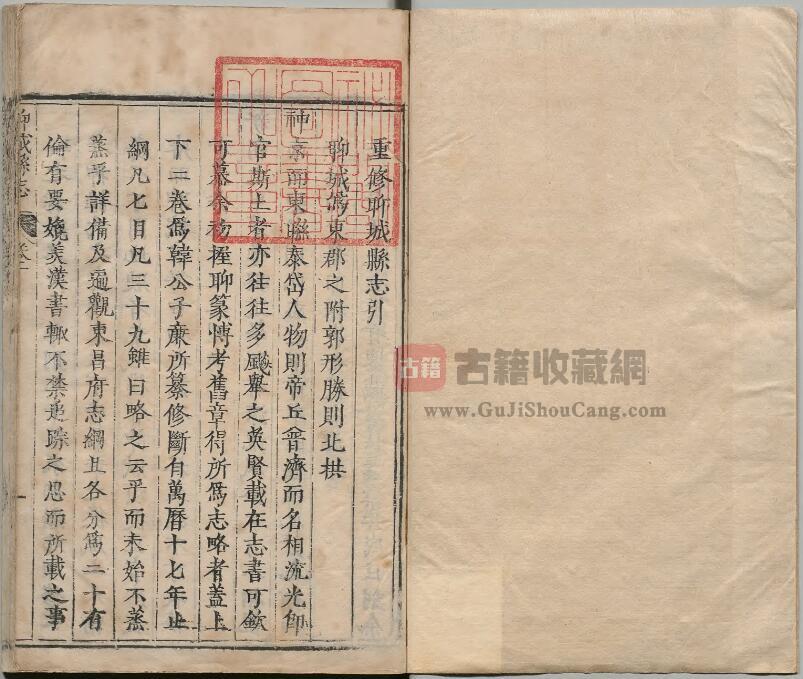 重修聊城縣志引
聊城爲東郡之附郭形勝則北拱
神京而東聯泰岱人物則帝丘晉濟而名相流光卽
官斯土者亦往往多颺舉之英賢載在志書可欽
可慕余初握聊篆愽考舊章得所爲志略者蓋上
下二卷爲韓公子亷所纂修斷自萬曆十七年止
綱凡七目凡三十九雖曰略之云乎而未始不蒸
蒸乎詳備及遍觀東昌府志綱且各分爲二十有
倫有要媲美漢書輙不禁追踪之思而所載之事
聊城縣志
卷一
一
古籍 古籍收藏網
www.GuJiShouCang.com